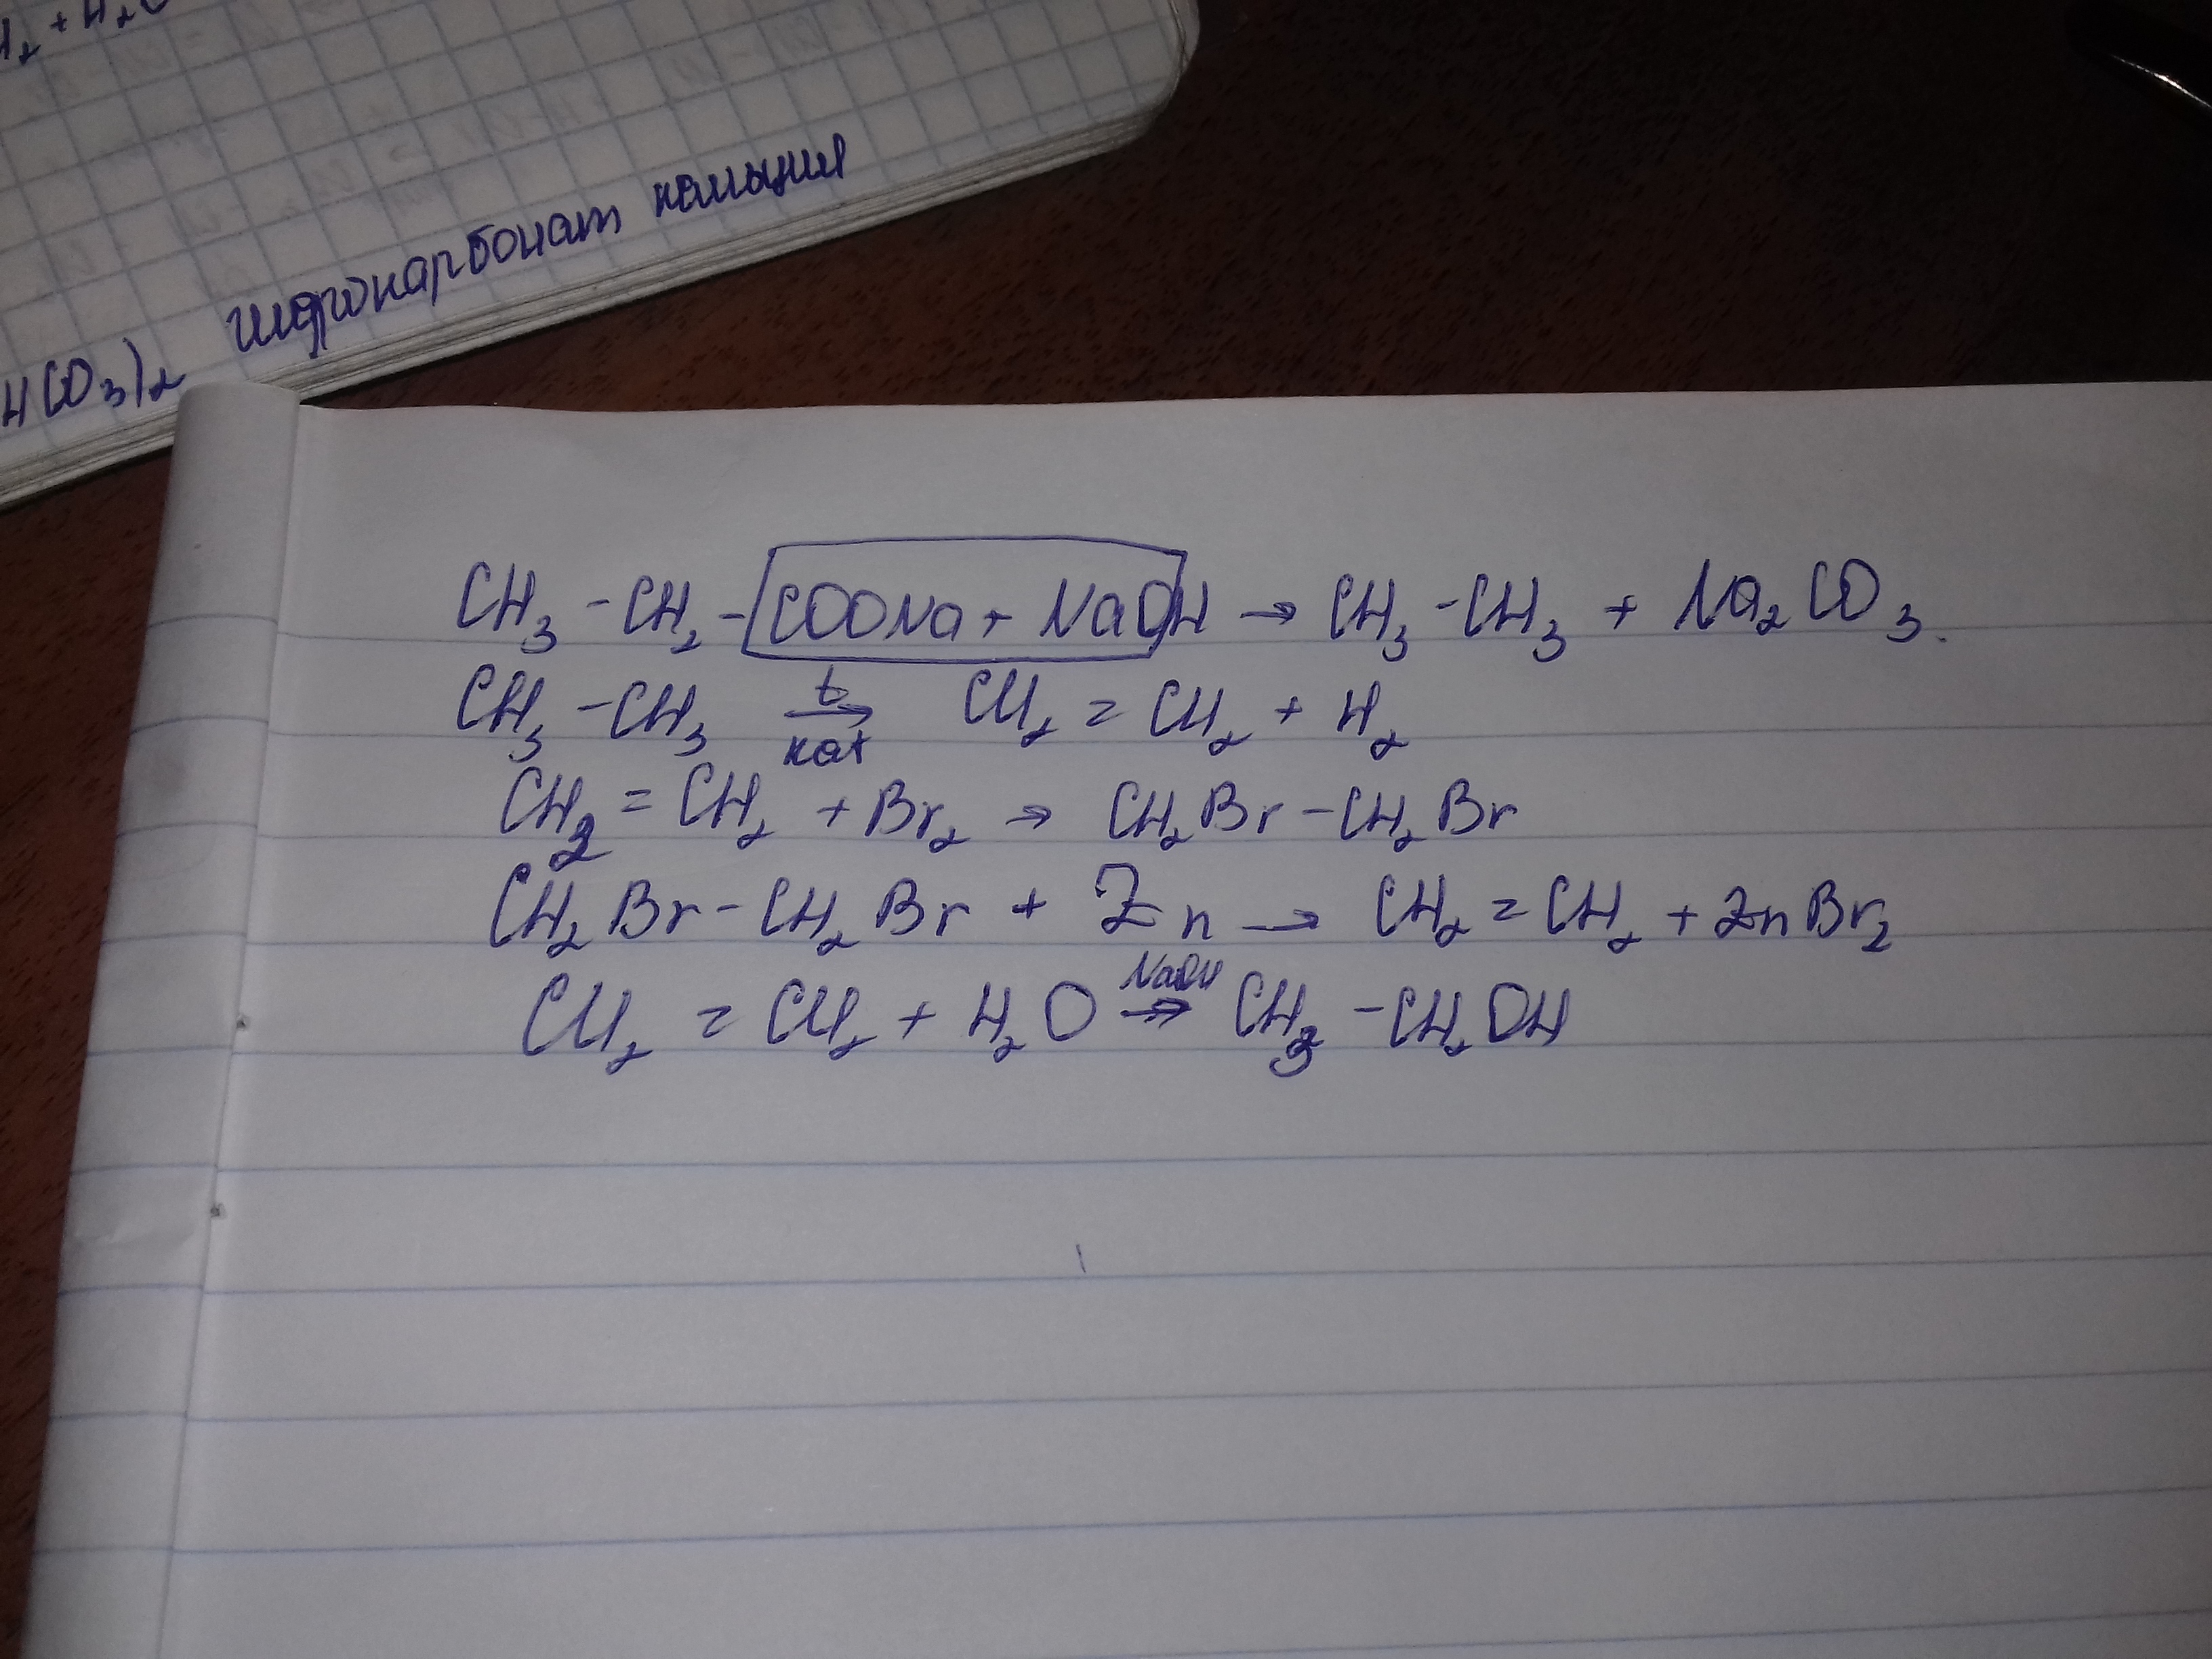 H₂ + H₂O
HCO₃)₂ гидрокарбонат кальция
CH₃ - CH₂ - COONa + NaOH → CH₃ - CH₃ + Na₂CO₃.
CH₃ - CH₃ t → кат CH₂ = CH₂ + H₂
CH₂ = CH₂ + Br₂ → CH₂Br - CH₂Br
CH₂Br - CH₂Br + Zn → CH₂ = CH₂ + ZnBr₂
CH₂ = CH₂ + H₂O NaOH → CH₃ - CH₂OH